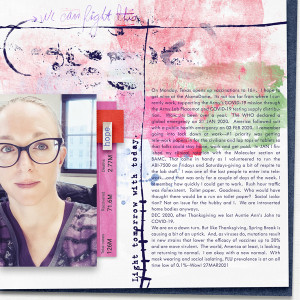 we can fight this
hope
277M
71.6M
126M
Light tomorrow with today
On Monday, Texas opens up vaccinations to 16+. I hope to
get mine at the AlamoDome. Its not too far from where I can
work, supporting the Army's COVID-19 mission through
the Army Lab Placeman and COVID-19 testing supply distribu-
tion. It has been over a year. The WHO declared a
global emergency on 31 JAN 2020. America followed suit
with a public health emergency on 03 FEB 2020. I remember
going into lock down at work
by with the Molecular section at
BAMC. That came in handy as I volunteered to run the
ABI-7500 on Fridays and Saturdays giving a bit of respite to
the lab staff. I was one of the last people to enter into tele-
work, and that was only for a couple of days of the week. I
remember how quickly I could get to work. Rush hour traffic
was nonexistent. Toilet paper. Goodness. Who would have
thought there would be a run on toilet paper? Social isola-
tion? Not an issue for the hubby and I. We are introverted
home bodies anyways.
DEC 2020, after Thanksgiving we lost Auntie Ann's John to
COVID-19.
We are on a down turn. But like Thanksgiving, Spring Break is
causing a bit of an uptick. And, as viruses do, mutations result
in new strains that lower the efficacy of vaccines up to 50%
and are more virulent. The world, America at least, is looking
at returning to normal. I am okay with a new normal. With
mask wearing and social isolating, FLU prevalence is at an all
time low of 0.1%~Wow! 27MAR2021